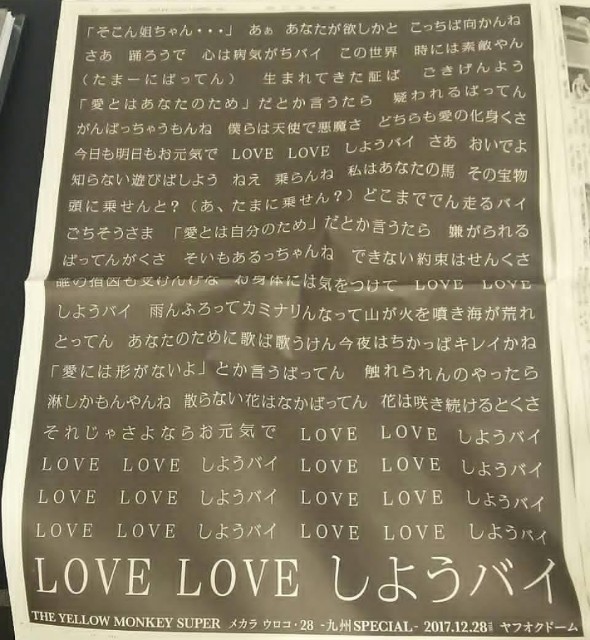 「そこん姐ちゃん・・・」 あぁ あなたが欲しかと こっちば向かんね
さあ 踊ろうで 心は病気がちバイ この世界 時には素敵やん
(たまーにばってん) 生まれてきた証ば ごきげんよう
「愛とはあなたのため」だとか言うたら 疑われるばってん
がんばっちゃうもんね 僕らは天使で悪魔さ どちらも愛の化身くさ
今日も明日もお元気で LOVE LOVE しようバイ さあ おいでよ
知らない遊びばしよう ねえ 乗らんね 私はあなたの馬 その宝物
頭に乗せんと?(あ、たまに乗せん?)どこまででん走るバイ
ごちそうさま 「愛とは自分のため」だとか言うたら 嫌がられる
ばってんがくさ そいもあるっちゃんね できない約束はせんくさ
誰の指図も受けんけな お身体には気をつけて LOVE LOVE
しようバイ 雨んふろってカミナリんなって山が火を噴き海が荒れ
とってん あなたのために歌ば歌うけん今夜はちかっぱキレイかね
「愛には形がないよ」とか言うばってん 触れられんのやったら
淋しかもんやんね 散らない花はなかばってん 花は咲き続けるとくさ
それじゃさよならお元気で LOVE LOVE しようバイ
LOVE LOVE しようバイ LOVE LOVE しようバイ
LOVE LOVE しようバイ LOVE LOVE しようバイ
LOVE LOVE しようバイ LOVE LOVE しようバイ
LOVE LOVE しようバイ
THE YELLOW MONKEY SUPER メカラ ウロコ・28 -九州SPECIAL- 2017.12.28 ヤフオクドーム